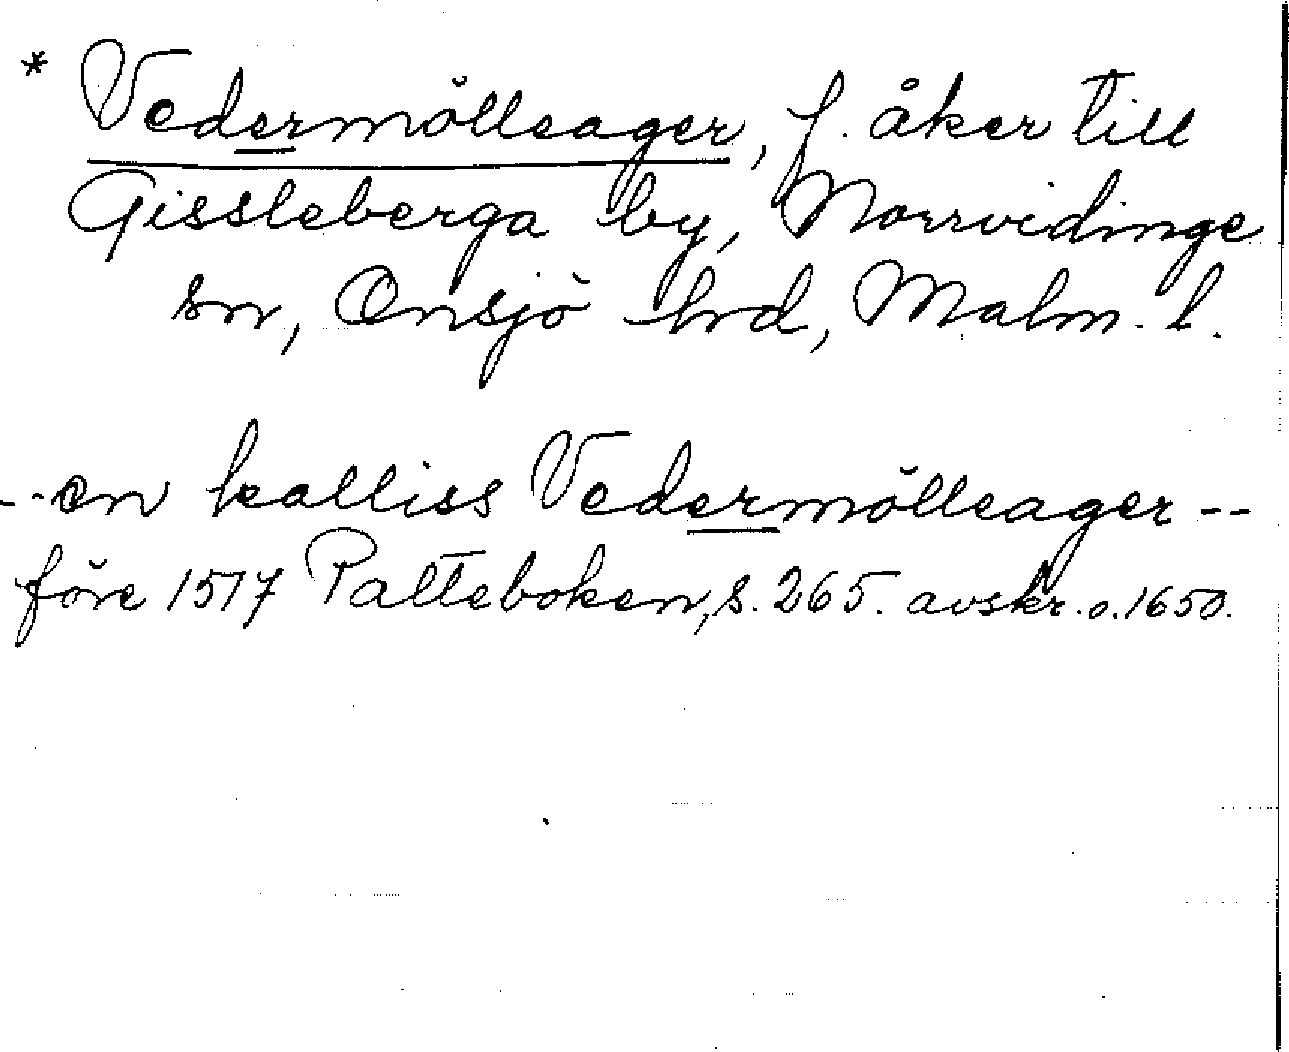 * Vedermölleager, f. åker till
Gissleberga by, Norrvidinge
sn, Onsjö hrd, Malm. l.
--en kalliss Vedermölleager--
före 1517 Palteboken, s. 265. avskr. o. 1650.